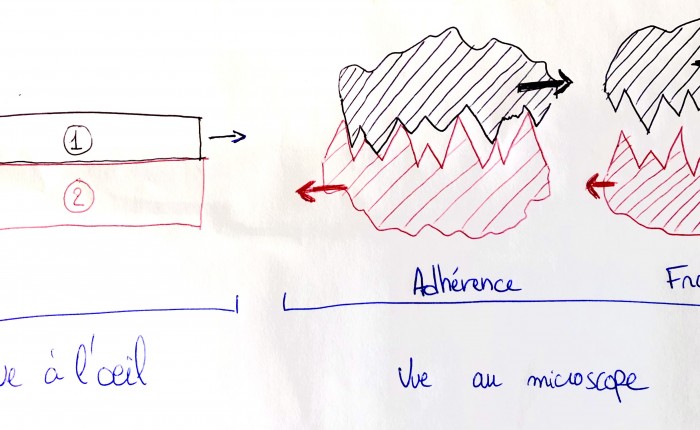 1
2
Adhérence
à l'œil
Vue au microscope